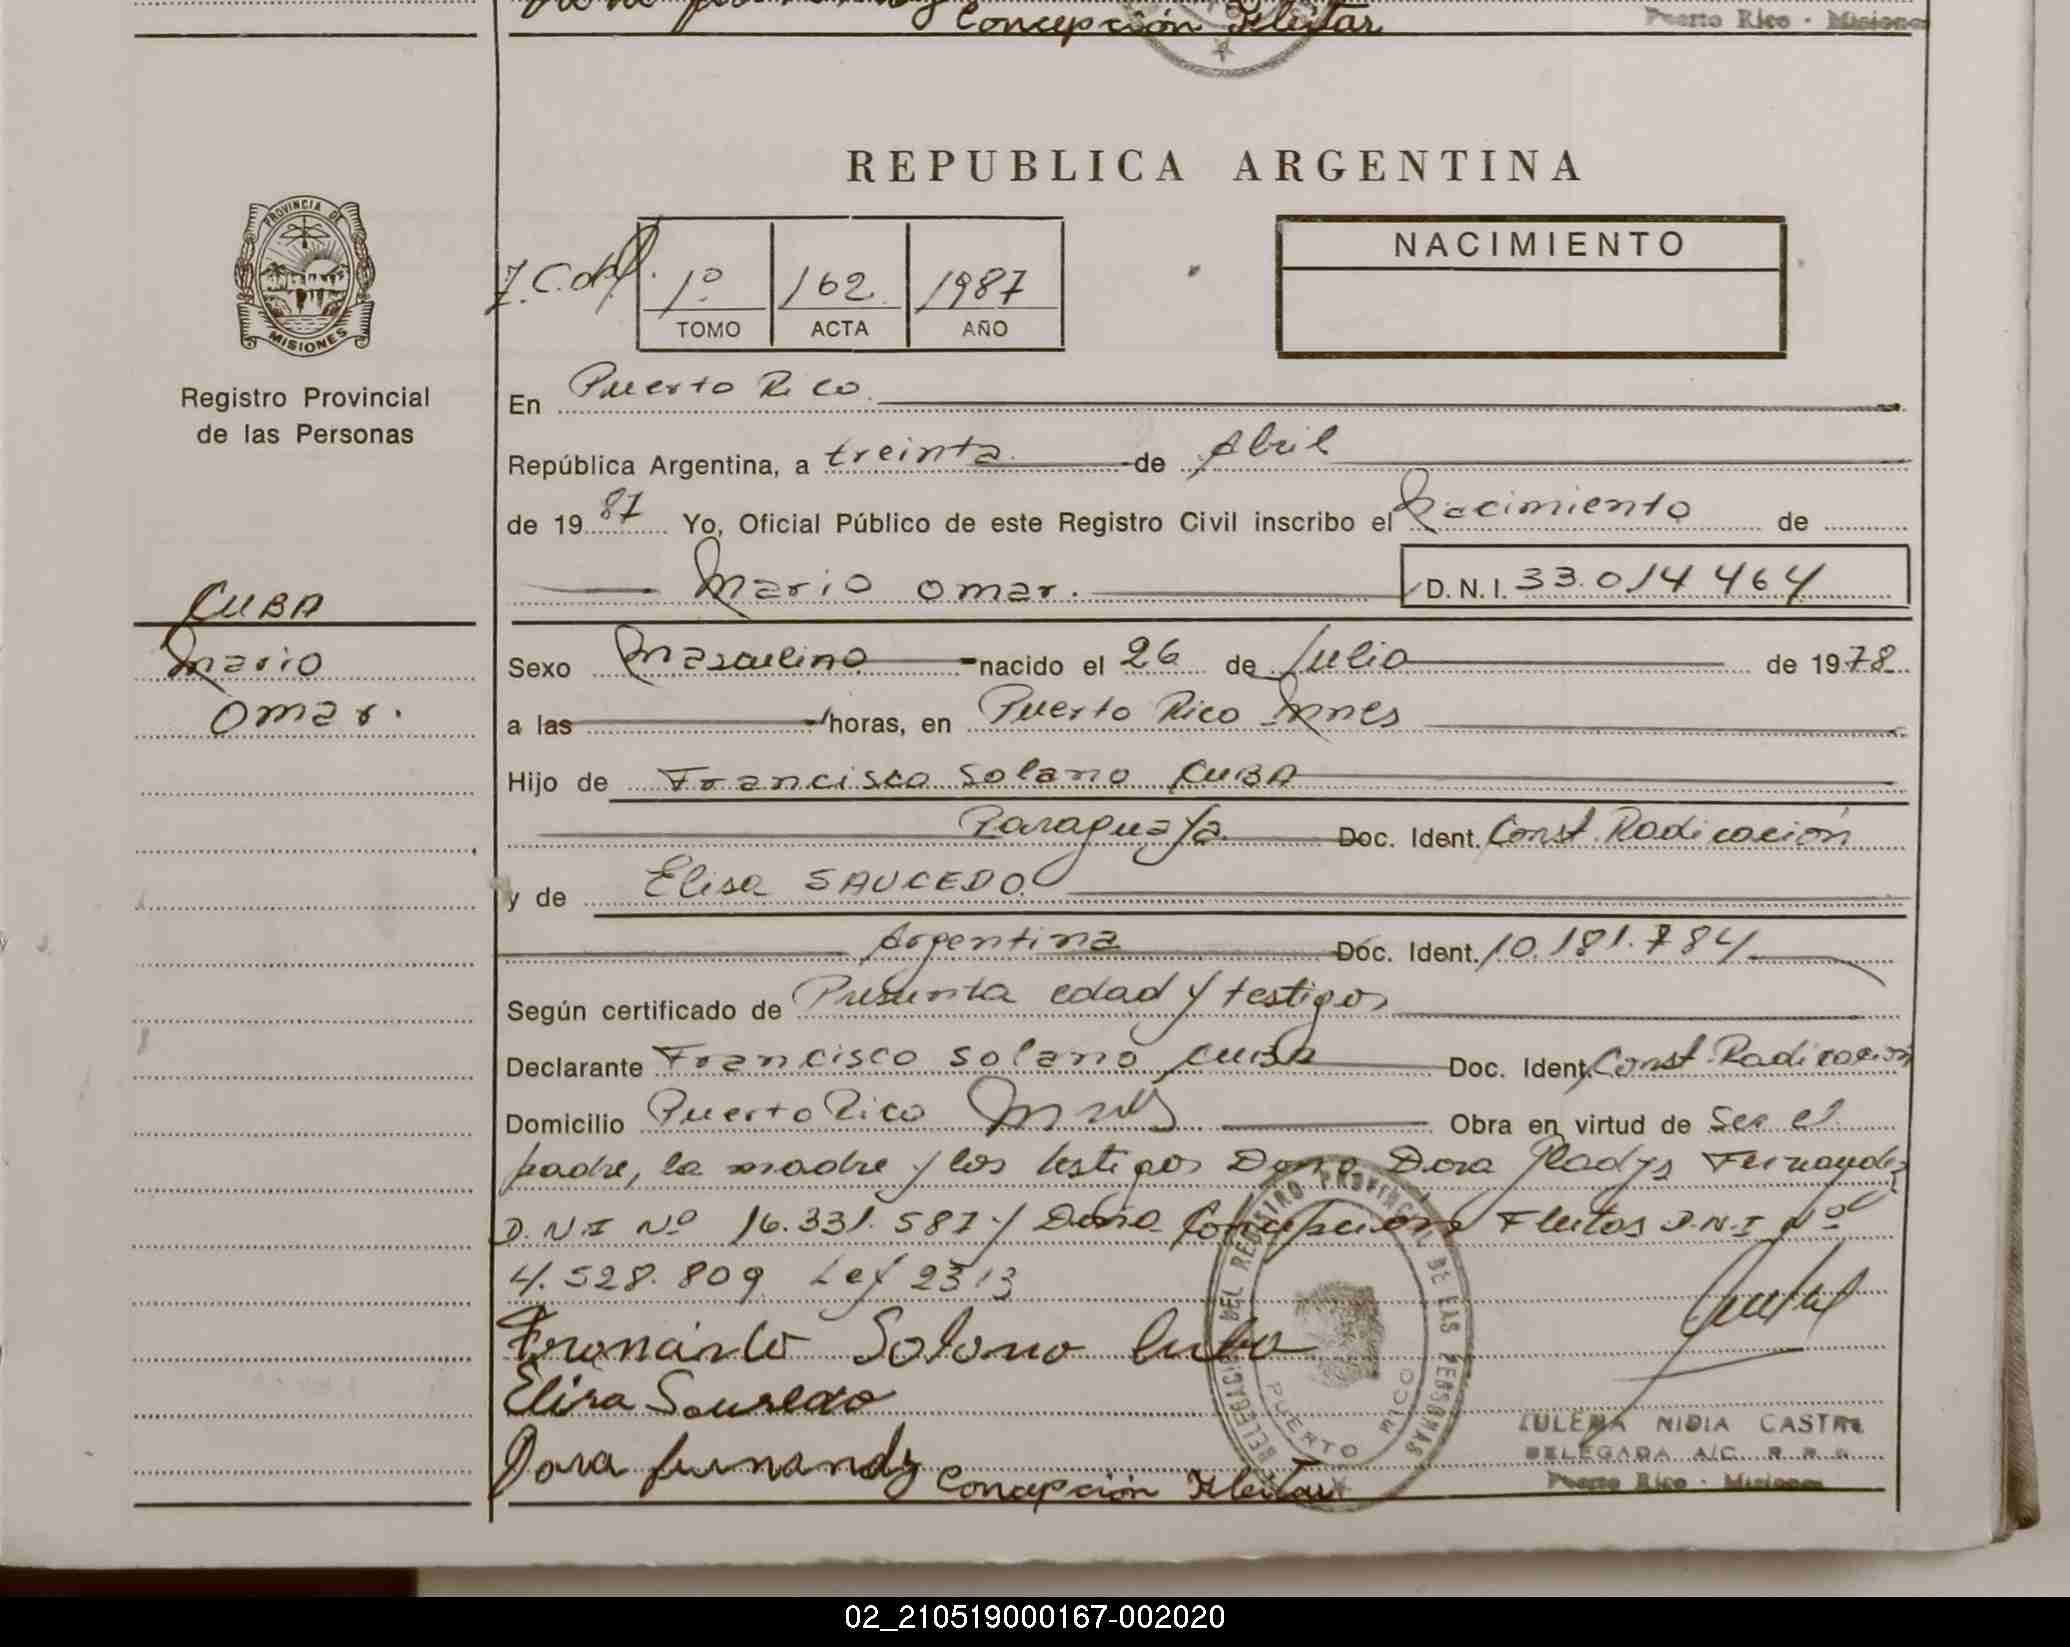 Concepción Fleitas
Puerto Rico - Misiones
REPUBLICA ARGENTINA
PROVINCIA DE
MISIONES
NACIMIENTO
1º 162 1987
TOMO ACTA AÑO
Registro Provincial
de las Personas
En Puerto Rico
República Argentina, a treinta de Abril
de 1987 Yo, Oficial Público de este Registro Civil inscribo el Nacimiento de
Mario Omar. D. N. I. 33.014464
CUBA
Mario
Omar.
Sexo Masculino nacido el 26 de Julio de 1978
a las horas, en Puerto Rico Mnes
Hijo de Francisco Solano CUBA
Paraguaya Doc. Ident. Const. Radicación
y de Elisa SAUCEDO
Argentina Doc. Ident. 10.181.784
Según certificado de Presunta edad y testigos
Declarante Francisco Solano CUBA Doc. Ident. Const. Radicación
Domicilio Puerto Rico Mnes Obra en virtud de Ser el
padre, la madre y los testigos Doña Dora Gladys Fernandez
D.N.I Nº 16.331.587 y Doña Concepcion Fleitas D.N.I Nº
4.528.809 Ley 2313
Francisco Solano Cuba
Elisa Saucedo
Dora Fernandez Concepción Fleitas
DELEGACION DEL REGISTRO PROVINCIAL DE LAS PERSONAS
PUERTO RICO
ZULEMA NIDIA CASTRO
DELEGADA A/C. R. P. P.
Puerto Rico - Misiones
02_210519000167-002020